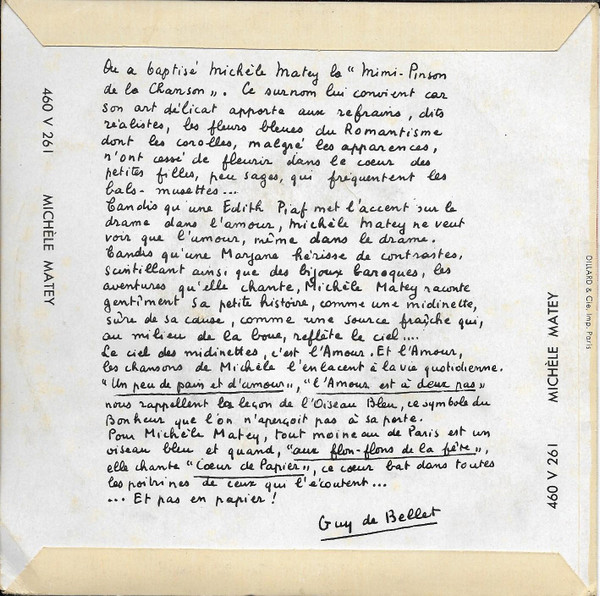 On a baptisé Michèle Matey la "Mimi-Pinson
de la Chanson". Ce surnom lui convient car
son art délicat apporte aux refrains, dits
réalistes, les fleurs bleues du Romantisme
dont les corolles, malgré les apparences,
n'ont cessé de fleurir dans le coeur des
petites filles, peu sages, qui fréquentent les
bals-musettes...
Tandis qu'une Edith Piaf met l'accent sur le
drame dans l'amour, Michèle Matey ne veut
voir que l'amour, même dans le drame.
Tandis qu'une Marjane hérisse de contrastes,
scintillant ainsi que des bijoux baroques, les
aventures qu'elle chante, Michèle Matey raconte
gentiment sa petite histoire, comme une midinette,
sûre de sa cause, comme une source fraîche qui,
au milieu de la boue, reflète le ciel....
Le ciel des midinettes, c'est l'Amour. Et l'Amour,
les chansons de Michèle l'enlacent à la vie quotidienne.
"Un peu de pain et d'amour", "l'Amour est à deux pas"
nous rappellent la leçon de l'Oiseau Bleu, ce symbole du
Bonheur que l'on n'aperçoit pas à sa porte.
Pour Michèle Matey, tout moineau de Paris est un
oiseau bleu et quand, "aux flon-flons de la fête",
elle chante "Coeur de Papier", ce coeur bat dans toutes
les poitrines de ceux qui l'écoutent...
... Et pas en papier !
Guy de Bellet
460 V 261 MICHÈLE MATEY
460 V 261 MICHÈLE MATEY
DILLARD & Cie. Imp. Paris